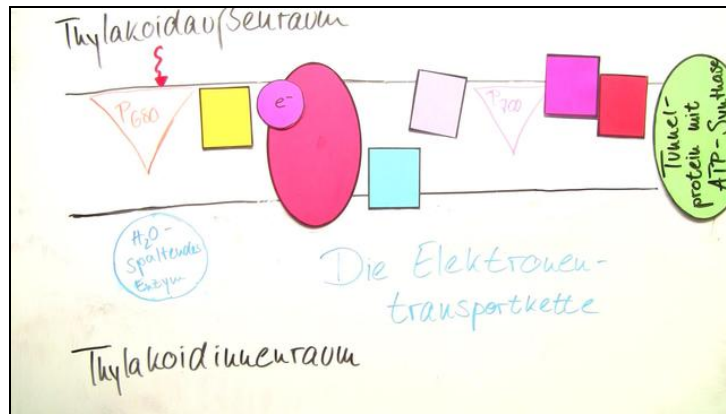 Thylakoidaußenraum
P680
e⁻
P700
Tunnel-
protein mit
ATP-Synthase
H₂O-
spaltendes
Enzym
Die Elektronen-
transportkette
Thylakoidinnenraum